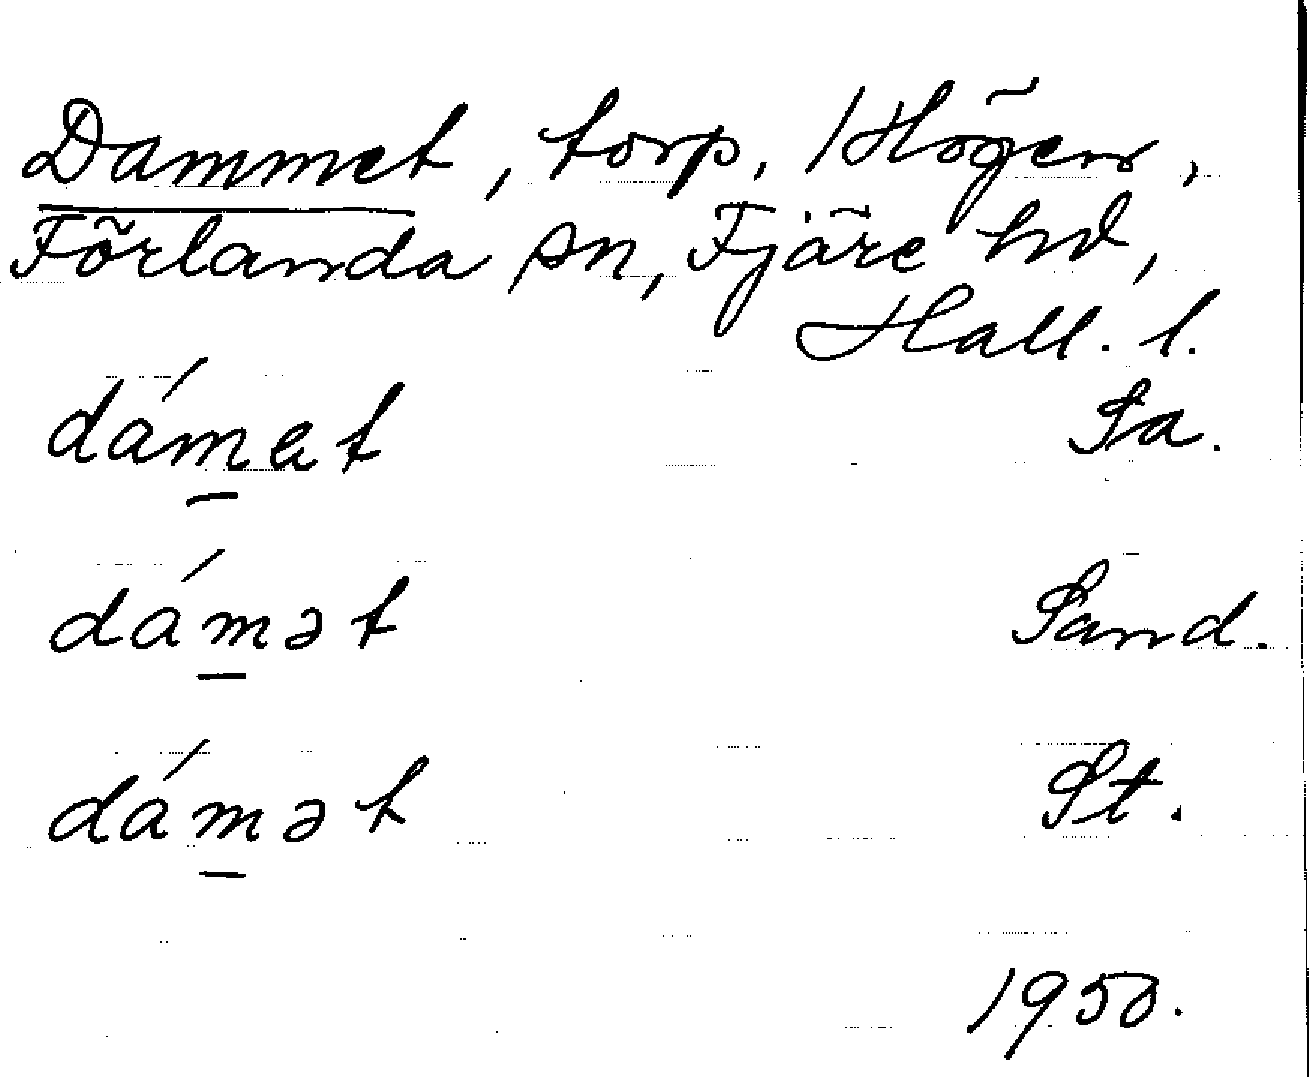 Dammet, torp, /Högen,
Förlanda sn, Fjäre hd,
Hall. l.
dámat Sa.
dámət Sand.
dámət St.
1950.